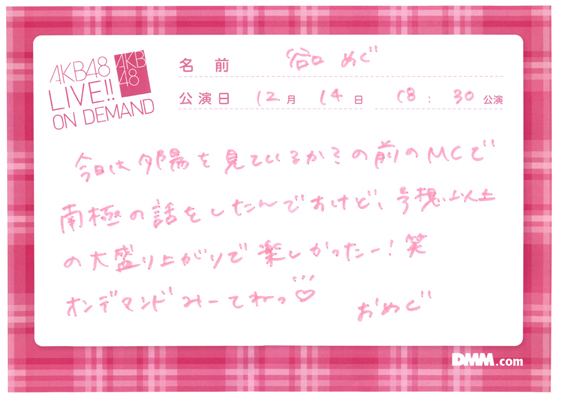 AKB48
LIVE!!
ON DEMAND
AKB
48
名 前 谷口 めぐ
公演日 12月 14日 18:30公演
今日は夕陽を見ているか?の前のMCで
南極の話をしたんですけど、予想以上
の大盛り上がりで楽しかったー!笑
オンデマンドみーてねっ♡
おめぐ
DMM.com